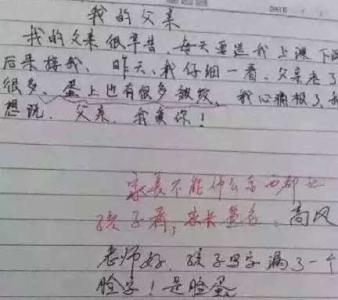 我的父亲
我的父亲很辛苦,每天要送我上课下课
后来接我、昨天、我仔细一看,父亲老了
很多、蛋上也有很多皱纹、我心痛极了我
想说、父亲、我爱你!
家长不能什么东西都让
孩子看,家长签名、高风
老师好、孩子写字漏了一个
脸字!是脸蛋